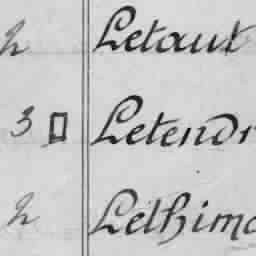 2 Letaux
3 □ Letendr
2 Lethimo